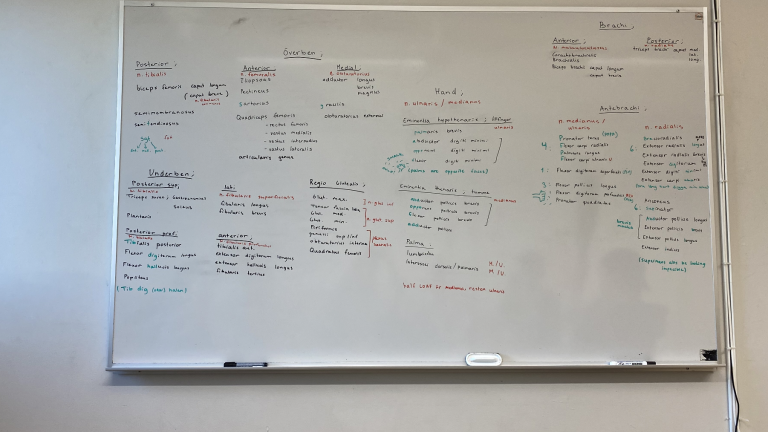 Överben;
Posterior;
n. tibialis
biceps femoris caput longum
(caput breve)
semimembranosus
semitendinosus
Anterior;
n. femoralis
Iliopsoas
Pectineus
Sartorius
Quadriceps femoris
- rectus femoris
- vastus medialis
- vastus intermedius
- vastus lateralis
articularis genus
Medial;
n. obturatorius
adductor longus
brevis
magnus
gracilis
obturatorius externus
Underben;
Posterior sup;
n. tibialis
Triceps surae; Gastrocnemius
Soleus
Plantaris
Posterior prof;
Tibialis posterior
Flexor digitorum longus
Flexor hallucis longus
Popliteus
lat;
n. fibularis superficialis
fibularis longus
fibularis brevis
anterior;
extensor digitorum longus
extensor hallucis longus
fibularis tertius
Regio Glutealis;
Glut max.
Tensor fascia lata
Glut med
Glut min.
Piriformis
obturatorius internus
Quadratus femoris
n. glut inf
n. glut sup
plexus sacralis
Hand;
n. ulnaris / medianus
Eminentia hypothenaris; lillfinger
ulnaris
palmaris brevis
abductor digiti minimi
opponens digiti minimi
flexor digiti minimi
Eminentia thenaris; tumme
medianus
opponens pollicis brevis
Flexor pollicis brevis
adductor pollicis
Palma;
lumbricales
Interossei dorsales/palmaris
M/U.
half LOAF är medianus, resten ulnaris
Brachi;
Anterior
n. musculocutaneus
Coracobrachialis
Brachialis
Biceps brachi caput longum
caput breve
Posterior
n. radialis
triceps brachi caput med
lat.
long.
Antebrachi;
n. medianus/
ulnaris
Pronator teres
Flexor carpi radialis
Palmaris longus
Flexor carpi ulnaris
Flexor digitorum superficialis
Flexor pollicis longus
Flexor digitorum profundus
Pronator quadratus
n. radialis
Brachioradialis
Extensor radialis longus
Extensor radialis brevis
Extensor digitorum
Extensor digiti minimi
Extensor carpi ulnaris
Anconeus
Supinator
Abductor pollicis longus
Extensor pollicis brevis
Extensor pollicis longus
Extensor indicis